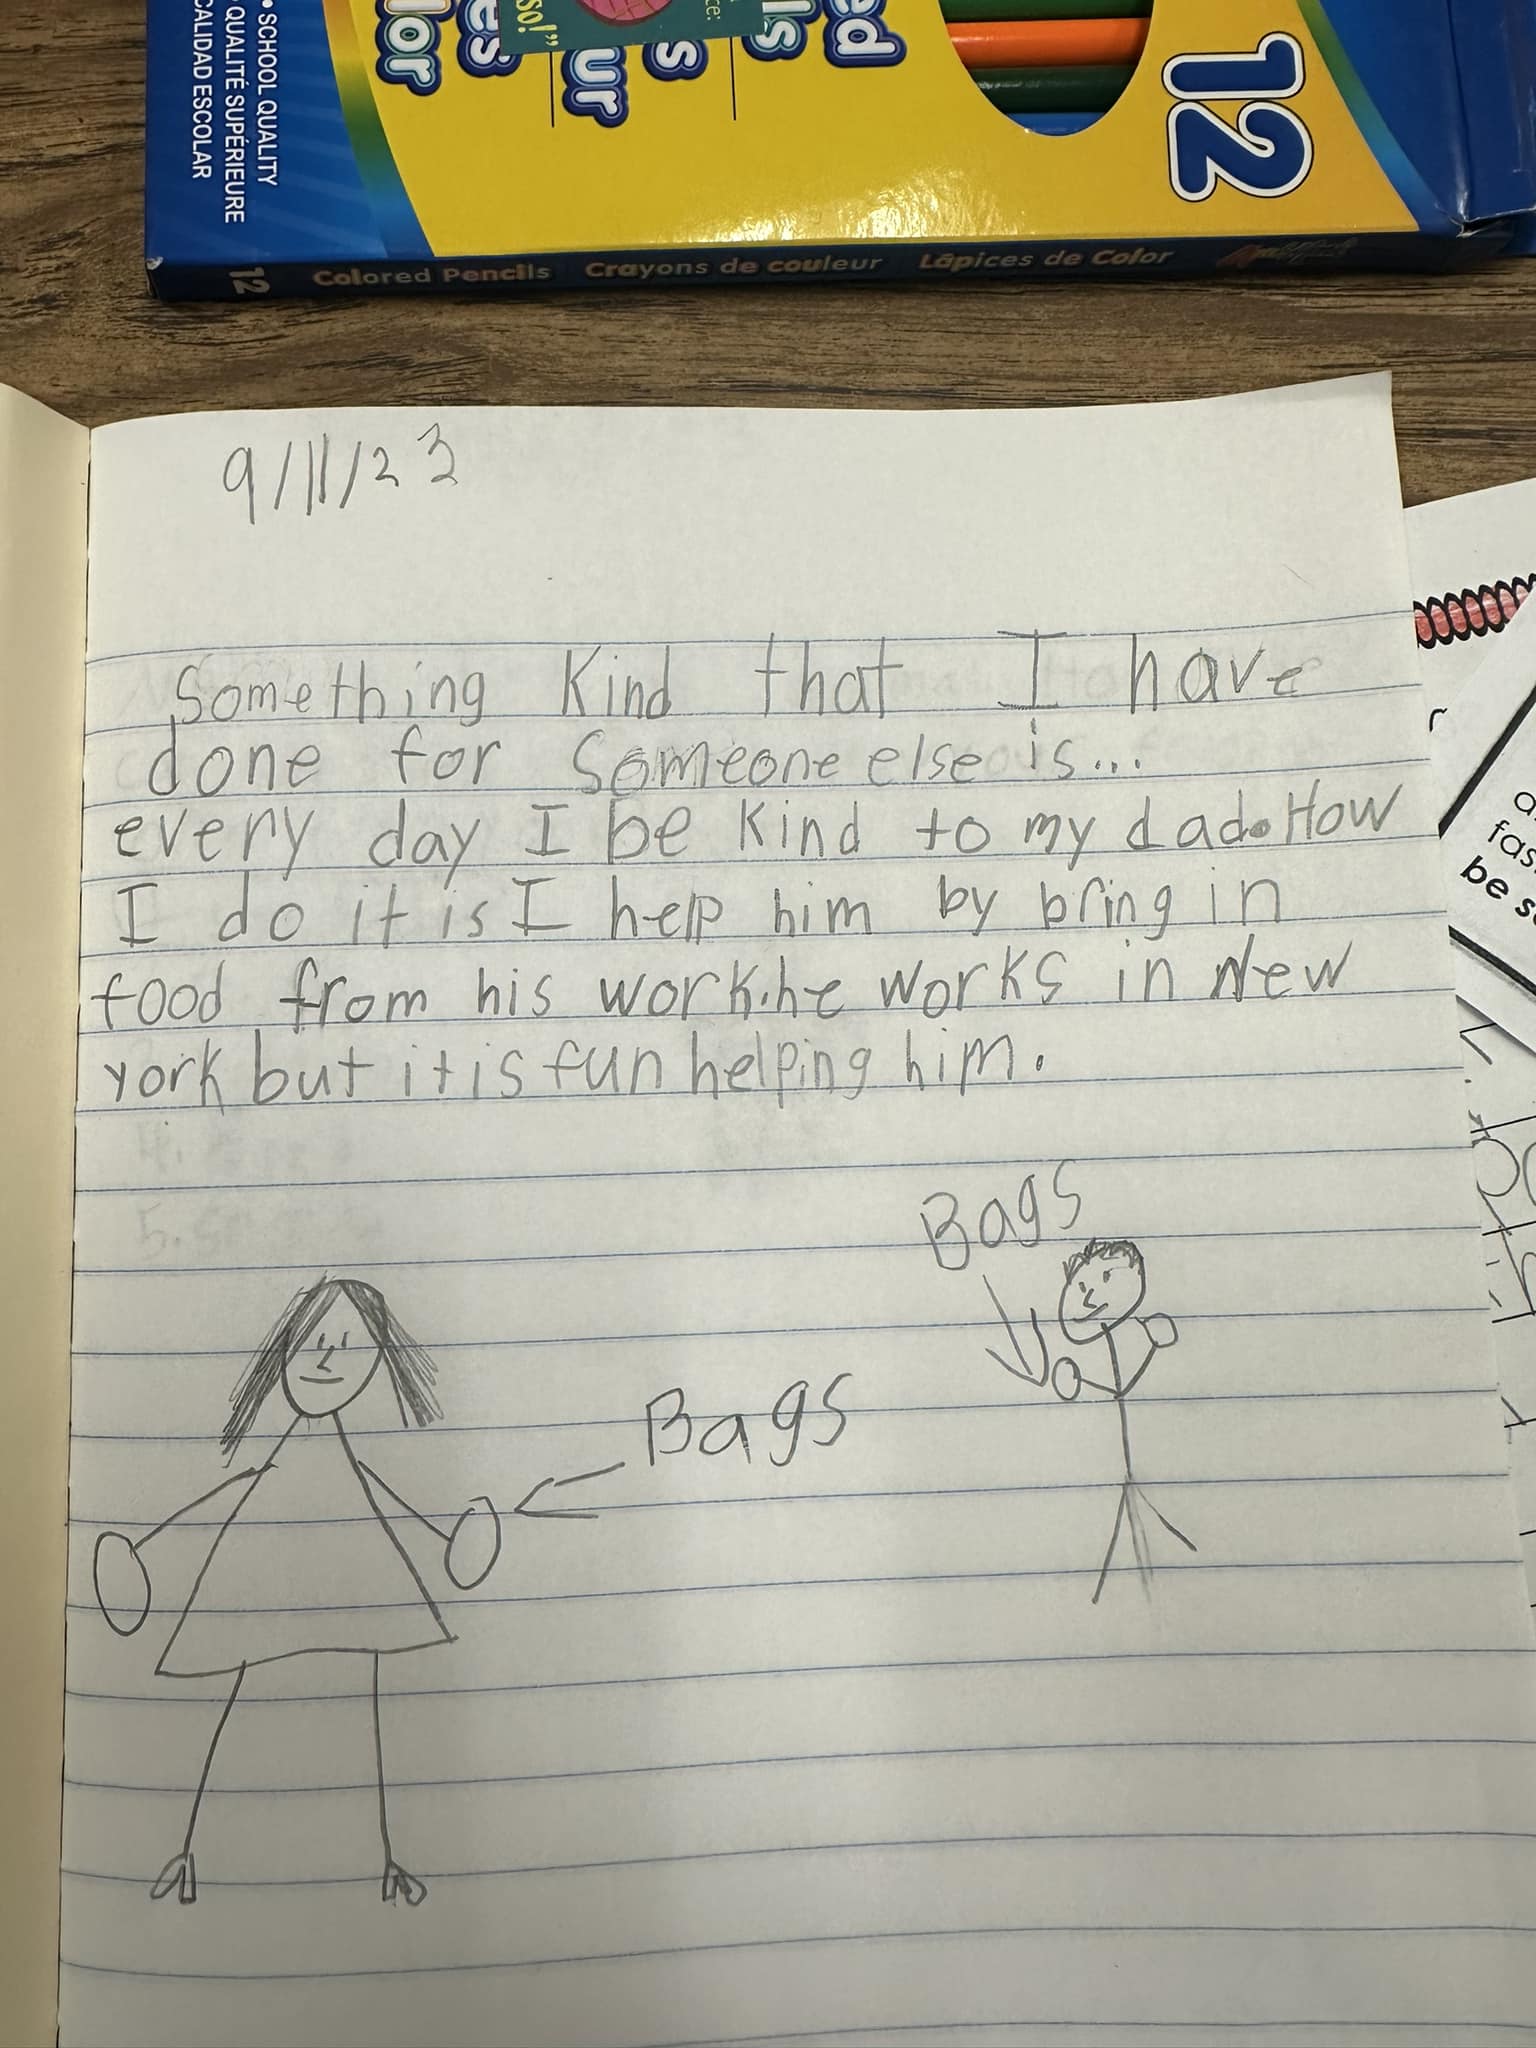 • SCHOOL QUALITY
• QUALITÉ SUPÉRIEURE
CALIDAD ESCOLAR
so!"
12
12 Colored Pencils Crayons de couleur Lápices de Color
9/11/23
Something Kind that I have
done for Someone else is...
every day I be kind to my dad. How
I do it is I help him by bring in
food from his work. he works in New
york but it is fun helping him.
Bags
Bags
be s